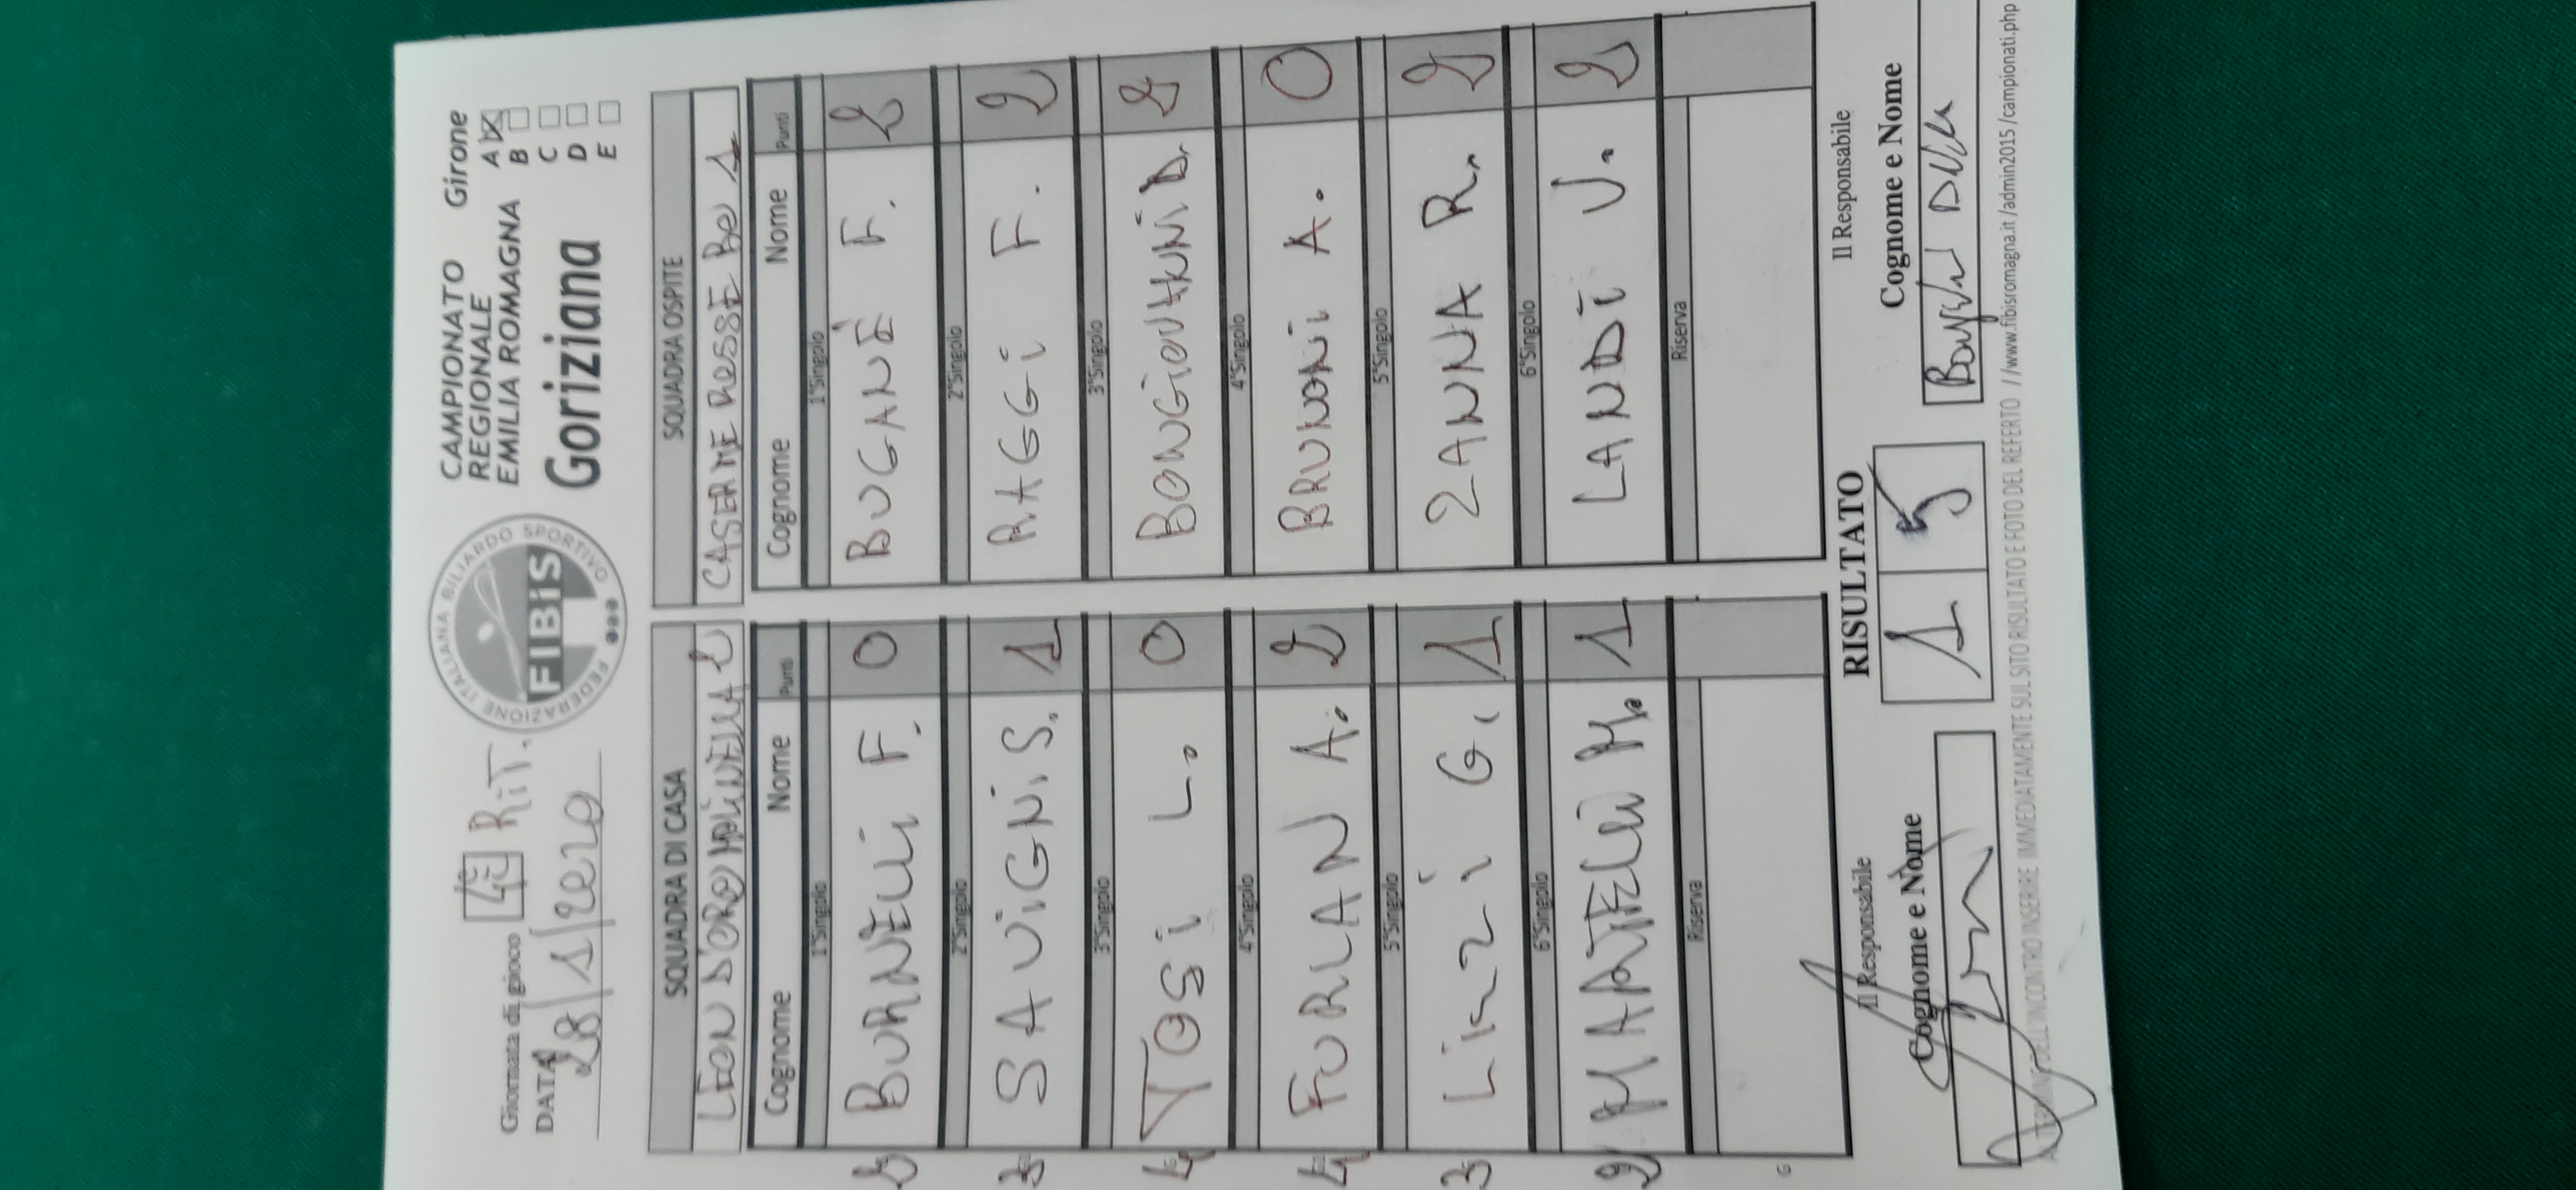 Giornata di gioco 4ª RiT.
DATA 28/1/2020
FEDERAZIONE ITALIANA BILIARDO SPORTIVO
FIBiS
CAMPIONATO
REGIONALE
EMILIA ROMAGNA
Goriziana
Girone
A
B
C
D
E
SQUADRA DI CASA
LEON D'ORO MOLINELLA 2
Cognome Nome Punti
1°Singolo
BURNELLI F. 0
2°Singolo
SAVIGNi S. 1
3°Singolo
TOSi L. 0
4°Singolo
FURLAN A. 2
5°Singolo
LinZi G. 1
6°Singolo
MANTELLi M. 1
Riserva
2
3
4
4
3
2
G
SQUADRA OSPITE
CASERME ROSSE BO 1
Cognome Nome Punti
1°Singolo
BUGANÈ F. 2
2°Singolo
RAGGi F. 2
3°Singolo
BONGiOVANNi D. 2
4°Singolo
BRUNONi A. 0
5°Singolo
ZANNA R. 2
6°Singolo
LANDi V. 2
Riserva
Il Responsabile
Cognome e Nome
RISULTATO
1 5
Il Responsabile
Cognome e Nome
AL TERMINE DELL'INCONTRO INSERIRE IMMEDIATAMENTE SUL SITO RISULTATO E FOTO DEL REFERTO //www.fibisromagna.it /admin2015 /campionati.php